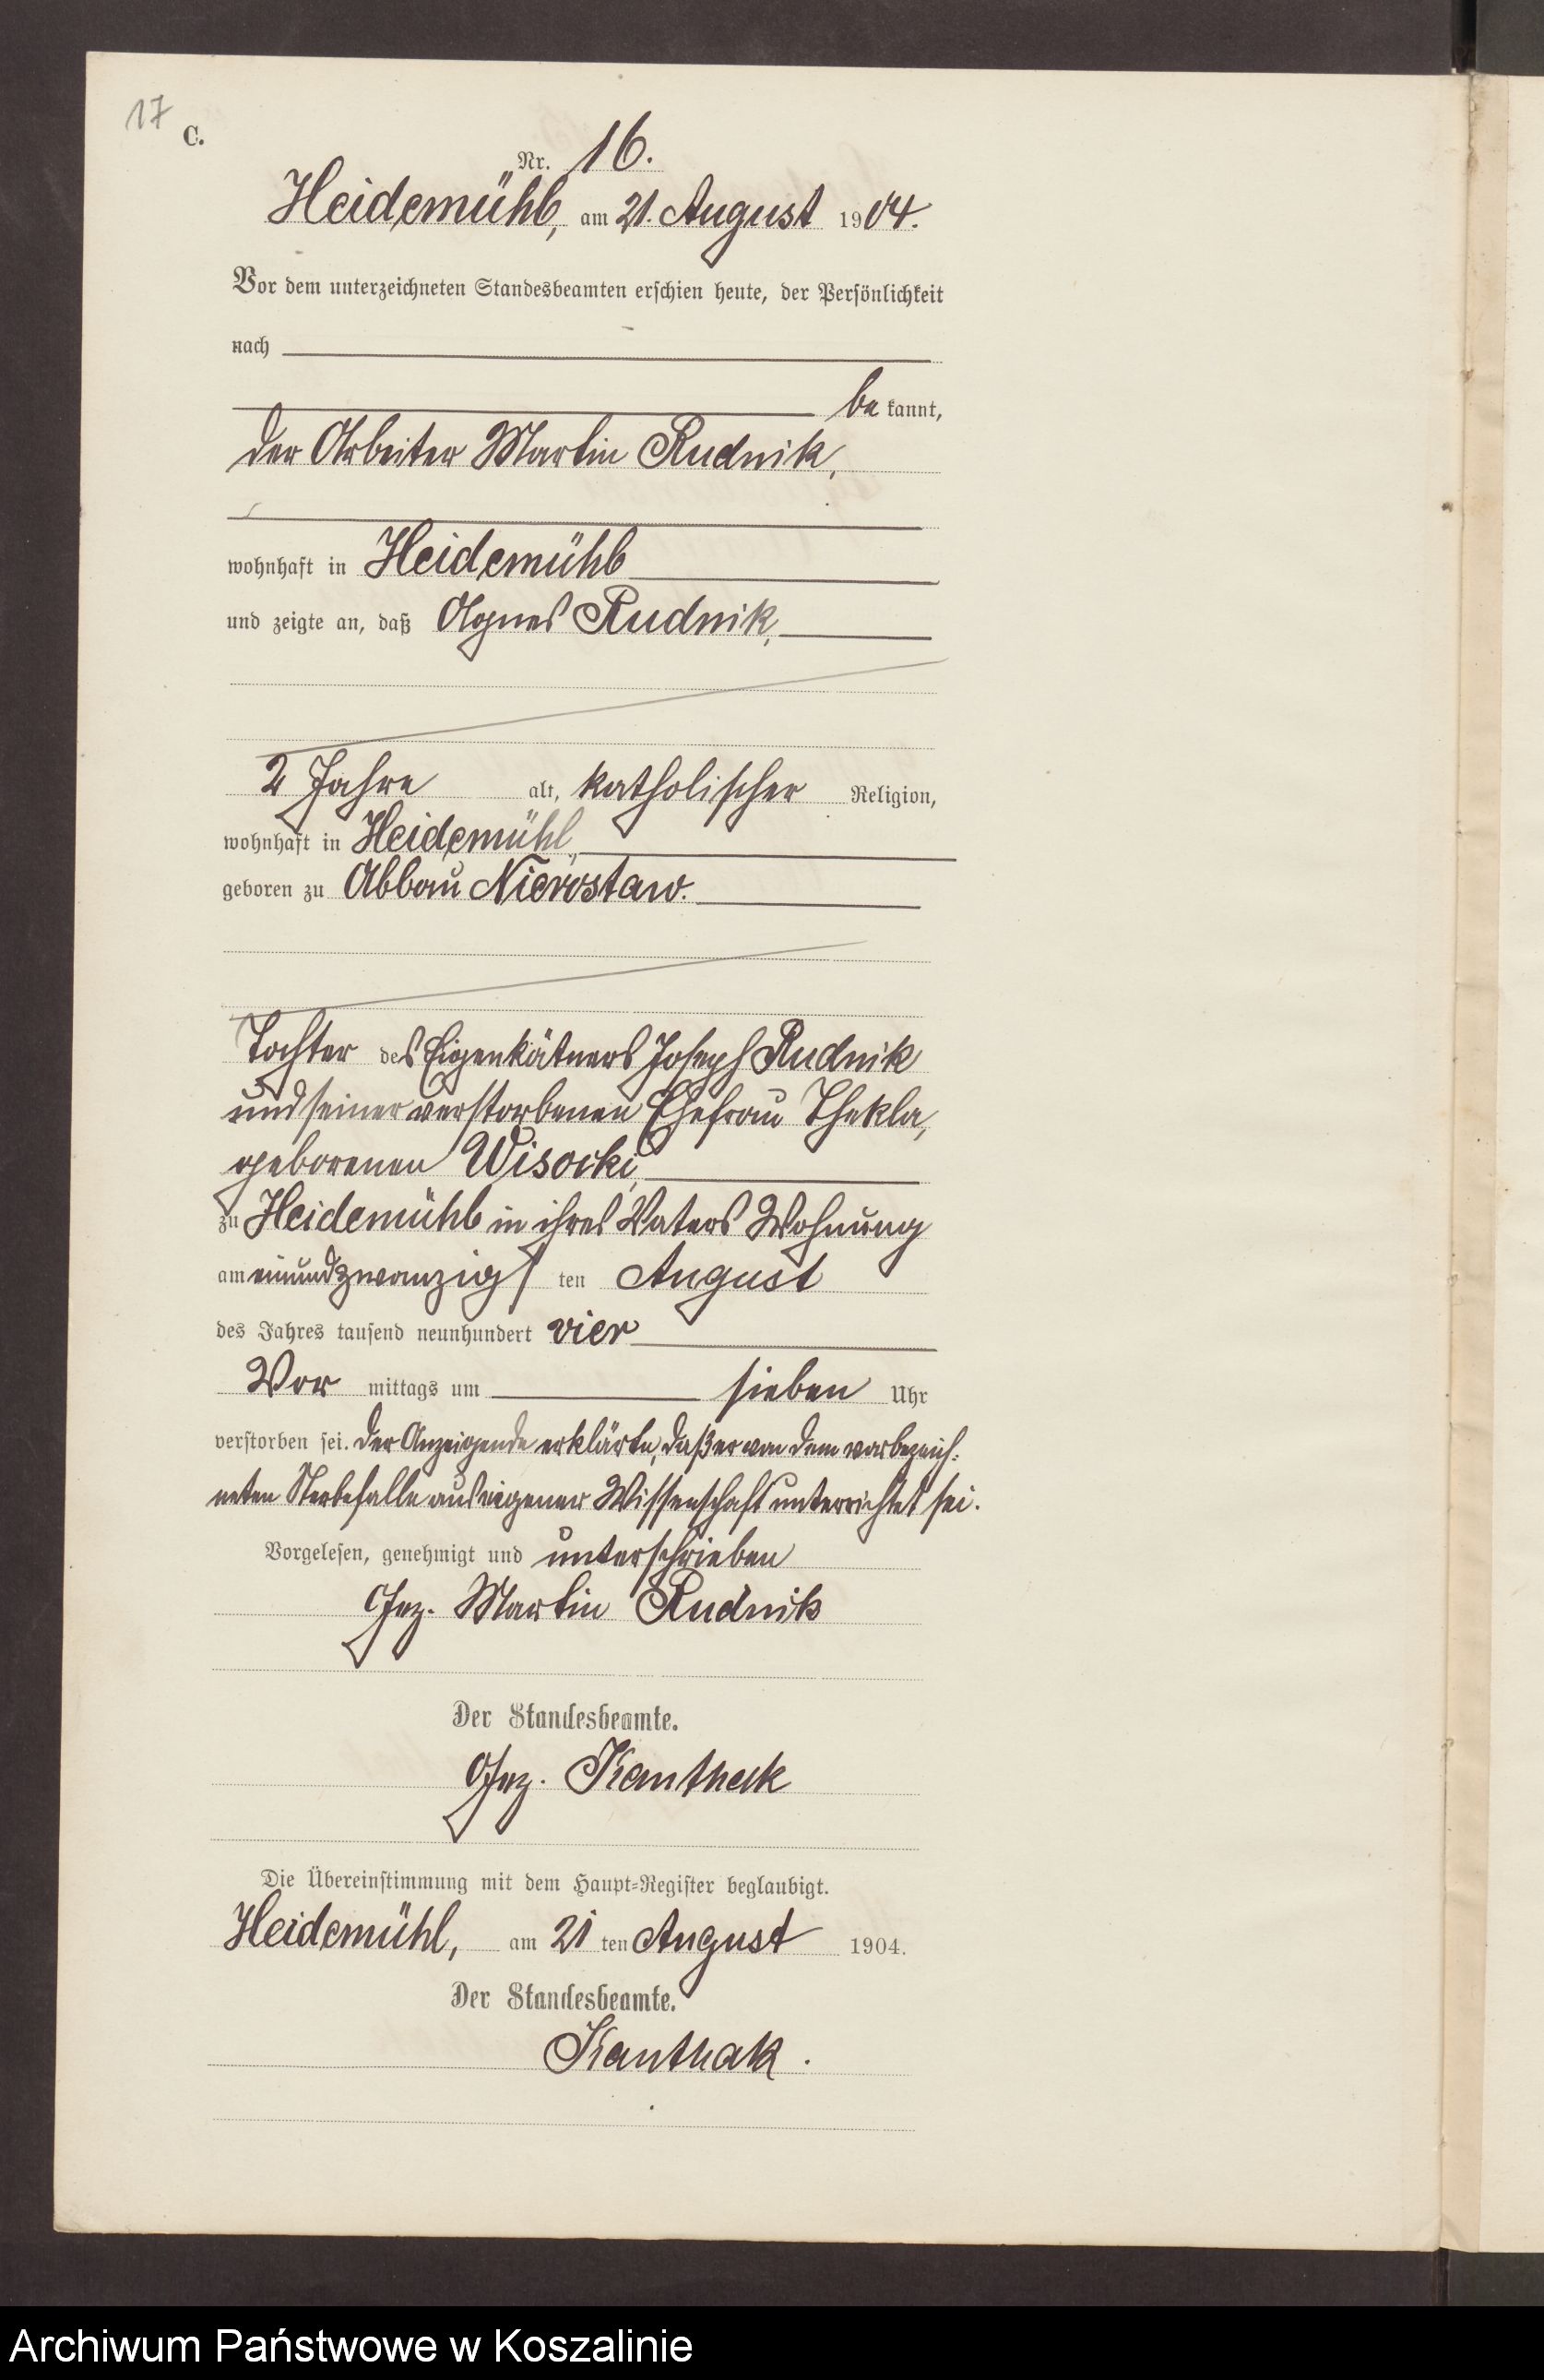 17
C.
Nr. 16.
Heidemühl, am 21. August 1904.
Vor dem unterzeichneten Standesbeamten erschien heute, der Persönlichkeit
nach
be kannt,
der Arbeiter Martin Rudnik,
wohnhaft in Heidemühl
und zeigte an, daß Agnes Rudnik,
2 Jahre alt, katholischer Religion,
wohnhaft in Heidemühl,
geboren zu Abbau Nierostaw.
Tochter des Eigenkätners Joseph Rudnik
und seiner verstorbenen Ehefrau Thekla,
geborenen Wisocki,
zu Heidemühl in ihres Vaters Wohnung
am einundzwanzigs ten August
des Jahres tausend neunhundert vier
Vor mittags um sieben Uhr
verstorben sei. Der Anzeigende erklärte, daß er von dem vorbezeich-
neten Sterbefalle aus eigener Wissenschaft unterrichtet sei.
Vorgelesen, genehmigt und unterschrieben
Gez. Martin Rudnik
Der Standesbeamte.
Gez. Kanthak
Die Übereinstimmung mit dem Haupt-Register beglaubigt.
Heidemühl, am 21 ten August 1904.
Der Standesbeamte.
Kanthak.
Archiwum Państwowe w Koszalinie